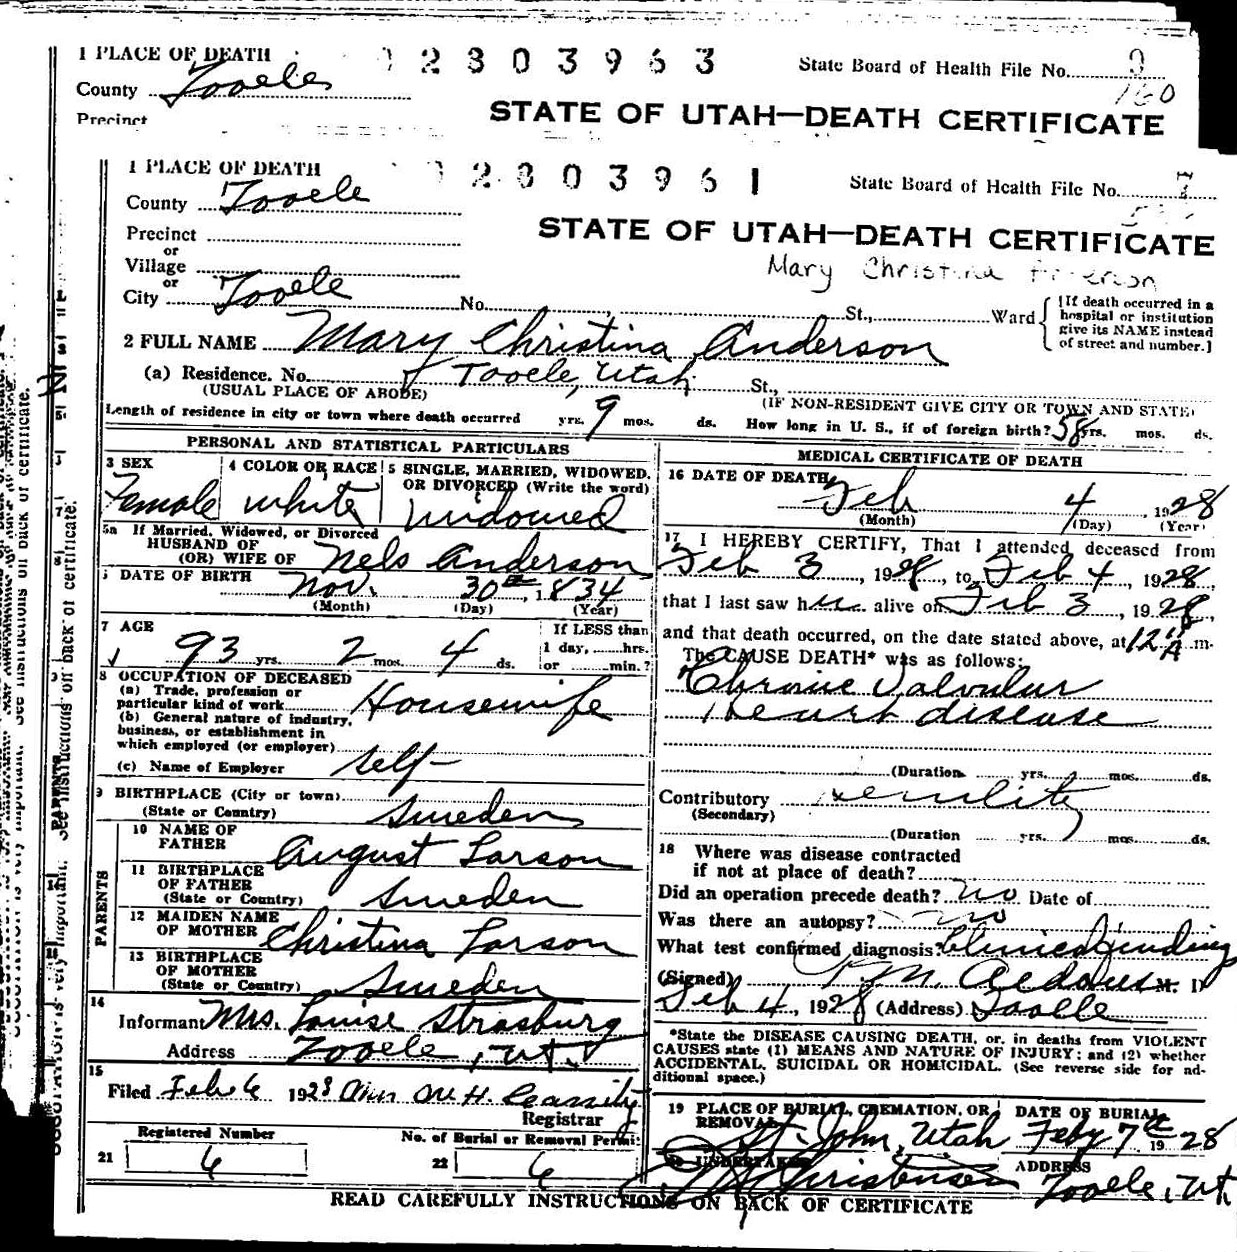 1 PLACE OF DEATH
2303963
State Board of Health File No. 9
160
County Tooele
Precinct
STATE OF UTAH—DEATH CERTIFICATE
1 PLACE OF DEATH
2303961
State Board of Health File No. 7
County Tooele
STATE OF UTAH—DEATH CERTIFICATE
Precinct
or
Village
Mary Christina
or
City Tooele No. St., Ward
[If death occurred in a hospital or institution give its NAME instead of street and number.]
2 FULL NAME Mary Christina Anderson
(a) Residence. No. Tooele, Utah St.,
(USUAL PLACE OF ABODE) (IF NON-RESIDENT GIVE CITY OR TOWN AND STATE)
Length of residence in city or town where death occurred yrs. 9 mos. ds. How long in U. S., if of foreign birth? 58 yrs. mos. ds.
PERSONAL AND STATISTICAL PARTICULARS
3 SEX
Female
4 COLOR OR RACE
white
5 SINGLE, MARRIED, WIDOWED, OR DIVORCED (Write the word)
Widowed
5a If Married, Widowed, or Divorced
HUSBAND OF
(OR) WIFE OF Nels Anderson
DATE OF BIRTH Nov. 30th, 1834
(Month) (Day) (Year)
7 AGE
93 yrs. 2 mos. 4 ds.
If LESS than
1 day, hrs.
or min.?
8 OCCUPATION OF DECEASED
(a) Trade, profession or
particular kind of work Housewife
(b) General nature of industry,
business, or establishment in
which employed (or employer)
(c) Name of Employer self
9 BIRTHPLACE (City or town)
(State or Country) Sweden
PARENTS
10 NAME OF
FATHER August Larson
11 BIRTHPLACE
OF FATHER
(State or Country) Sweden
12 MAIDEN NAME
OF MOTHER Christina Larson
13 BIRTHPLACE
OF MOTHER
(State or Country) Sweden
14
Informant Mrs. Louise Strasburg
Address Tooele, Ut.
15
Filed Feb 6 1928 Mrs M H Cassity
Registrar
Registered Number
21 6
No. of Burial or Removal Permit
22 6
MEDICAL CERTIFICATE OF DEATH
16 DATE OF DEATH
Feb 4, 1928
(Month) (Day) (Year)
17 I HEREBY CERTIFY, That I attended deceased from
Feb 3, 1928, to Feb 4, 1928,
that I last saw her alive on Feb 3, 1928,
and that death occurred, on the date stated above, at 12 A m.
The CAUSE DEATH* was as follows:
Chronic Valvular
Heart disease
(Duration yrs. mos. ds.
Contributory Senility
(Secondary)
(Duration yrs. mos. ds.
18 Where was disease contracted
if not at place of death?
Did an operation precede death? no Date of
Was there an autopsy? no
What test confirmed diagnosis? Clinical findings
(Signed) M. D
Feb 4, 1928 (Address) Tooele
*State the DISEASE CAUSING DEATH, or, in deaths from VIOLENT
CAUSES state (1) MEANS AND NATURE OF INJURY; and (2) whether
ACCIDENTAL, SUICIDAL OR HOMICIDAL. (See reverse side for ad-
ditional space.)
19 PLACE OF BURIAL, CREMATION, OR
REMOVAL St. John, Utah
DATE OF BURIAL
Feby 7th 1928
20 UNDERTAKER
Christensen
ADDRESS
Tooele, Ut
READ CAREFULLY INSTRUCTIONS ON BACK OF CERTIFICATE